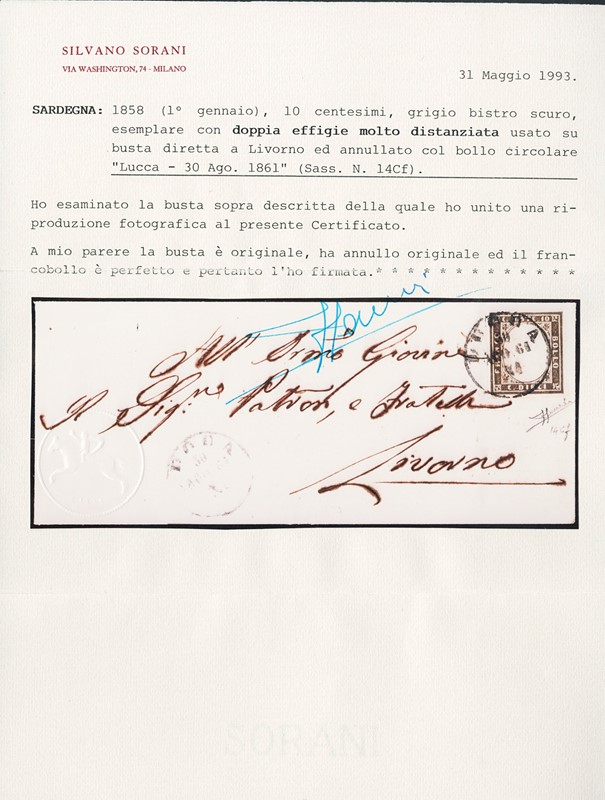 SILVANO SORANI
VIA WASHINGTON, 74 - MILANO
31 Maggio 1993.
SARDEGNA: 1858 (1° gennaio), 10 centesimi, grigio bistro scuro,
esemplare con doppia effigie molto distanziata usato su
busta diretta a Livorno ed annullato col bollo circolare
"Lucca - 30 Ago. 1861" (Sass. N. 14Cf).
Ho esaminato la busta sopra descritta della quale ho unito una ri-
produzione fotografica al presente Certificato.
A mio parere la busta è originale, ha annullo originale ed il fran-
cobollo è perfetto e pertanto l'ho firmata.* * * * * * * * * * * * *
All' Ornmo Giovine
Il Sigre Patron, e Fratelli
Livorno
BOLLO
C. DIECI
14Cf
SORANI